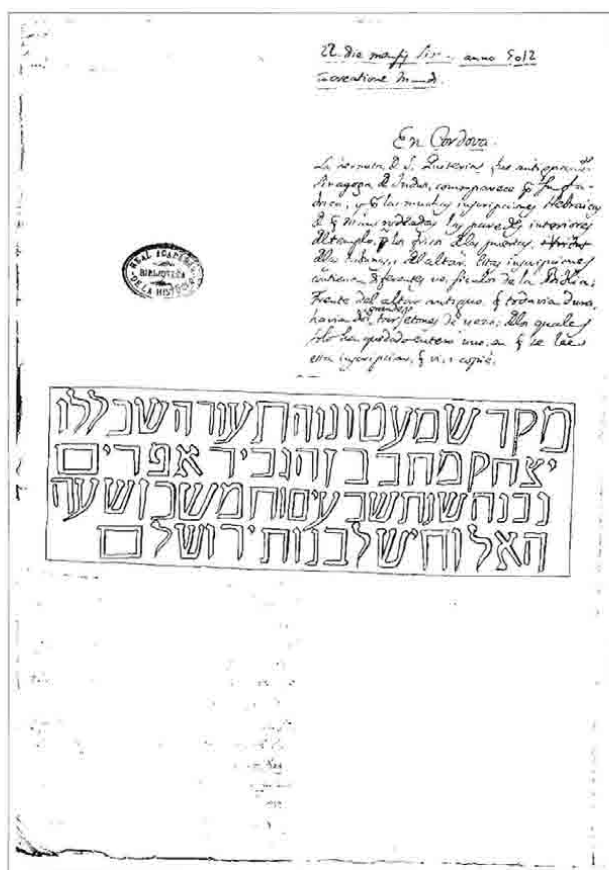 22. die anno 5012
creatione
En Cordova.
La S. Quiteria, fue
Sinagoga de Judios, como parece
y las muchas inscripciones Hebraicas
rodeadas las paredes interiores
del templo, los frisos de las puertas,
del altar. Estas inscripciones
contienen diferentes de la Biblia.
Frente del altar antiguo, q todavia dura,
havia dos grandes tarjetones de yeso; de los quales
solo ha quedado entero uno, en q se lee
esta inscripcion, q vi, i copié.
REAL ACADEMIA
BIBLIOTECA
DE LA HISTORIA
מקדש מעט ונוה תעודה שכללו
יצחק מחב בן הגביר אפרים
נבנה שנת שבעים וחמש כבן שעה
האל וחיש לבנות ירושלם